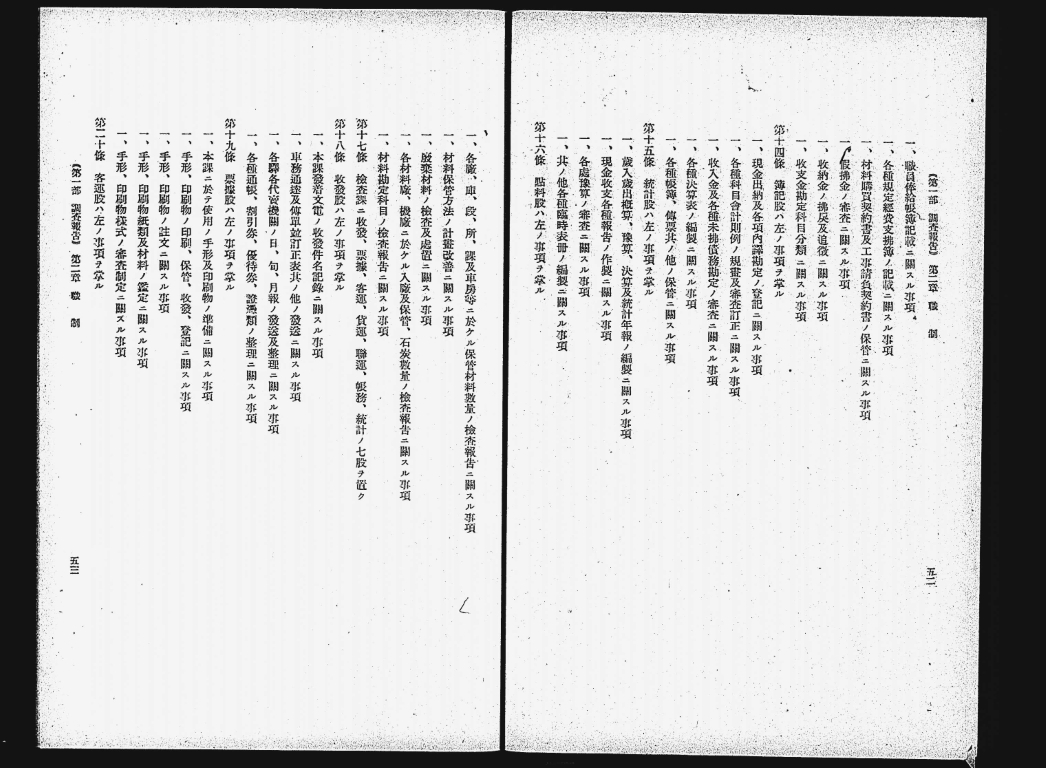 (第一部 調査報告) 第二章 職 制
五二
一、職員俸給帳簿記載ニ關スル事項
一、各種規定經費支拂簿ノ記載ニ關スル事項
一、材料購買契約書及工事請負契約書ノ保管ニ關スル事項
一、假拂金ノ審査ニ關スル事項
一、收納金ノ拂戾及追徵ニ關スル事項
一、收支金勘定科目分類ニ關スル事項
第十四條 簿記股ハ左ノ事項ヲ掌ル
一、現金出納及各項內譯勘定ノ登記ニ關スル事項
一、各種科目會計則例ノ規畫及審査訂正ニ關スル事項
一、收入金及各種未拂債務勘定ノ審査ニ關スル事項
一、各種決算表ノ編製ニ關スル事項
一、各種帳簿、傳票其ノ他ノ保管ニ關スル事項
第十五條 統計股ハ左ノ事項ヲ掌ル
一、歲入歲出概算、豫算、決算及統計年報ノ編製ニ關スル事項
一、現金收支各種報告ノ作製ニ關スル事項
一、各處豫算ノ審査ニ關スル事項
一、其ノ他各種臨時表冊ノ編製ニ關スル事項
第十六條 點料股ハ左ノ事項ヲ掌ル
一、各廠、庫、段、所、課及車房等ニ於ケル保管材料數量ノ檢査報告ニ關スル事項
一、材料保管方法ノ計畫改善ニ關スル事項
一、廢棄材料ノ檢査及處置ニ關スル事項
一、各材料廠、機廠ニ於ケル入廠及保管、石炭數量ノ檢査報告ニ關スル事項
一、材料勘定科目ノ檢査報告ニ關スル事項
第十七條 檢査課ニ收發、票據、客運、貨運、聯運、帳務、統計ノ七股ヲ置ク
第十八條 收發股ハ左ノ事項ヲ掌ル
一、本課發着文電ノ收發件名記錄ニ關スル事項
一、車務通達及傳單並訂正表其ノ他ノ發送ニ關スル事項
一、各驛各代賣機關ノ日、旬、月報ノ發送及整理ニ關スル事項
一、各種通帳、割引劵、優待劵、證憑類ノ整理ニ關スル事項
第十九條 票據股ハ左ノ事項ヲ掌ル
一、本課ニ於テ使用ノ手形及印刷物ノ準備ニ關スル事項
一、手形、印刷物ノ印刷、保管、收發、登記ニ關スル事項
一、手形、印刷物ノ註文ニ關スル事項
一、手形、印刷物紙類及材料ノ鑑定ニ關スル事項
一、手形、印刷物樣式ノ審査制定ニ關スル事項
第二十條 客運股ハ左ノ事項ヲ掌ル
(第一部 調査報告) 第二章 職 制
五三